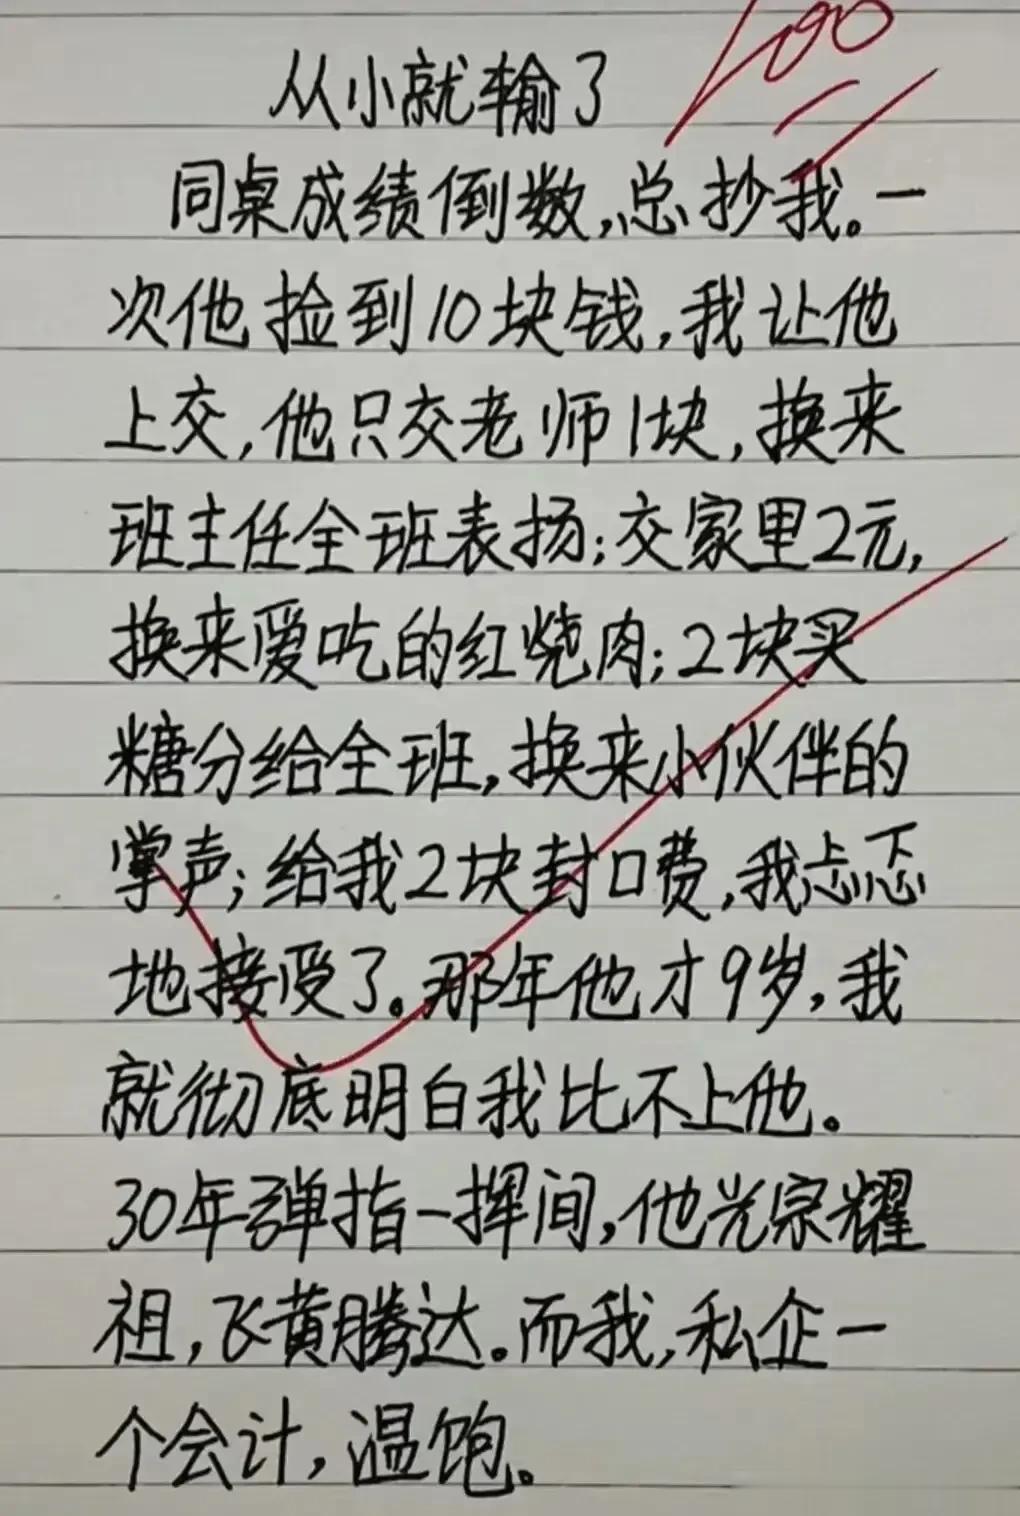 100
从小就输了
同桌成绩倒数,总抄我。一
次他捡到10块钱,我让他
上交,他只交老师1块,换来
班主任全班表扬;交家里2元,
换来爱吃的红烧肉;2块买
糖分给全班,换来小伙伴的
掌声;给我2块封口费,我忐忑
地接受了。那年他才9岁,我
就彻底明白我比不上他。
30年弹指一挥间,他光宗耀
祖,飞黄腾达。而我,私企一
个会计,温饱。